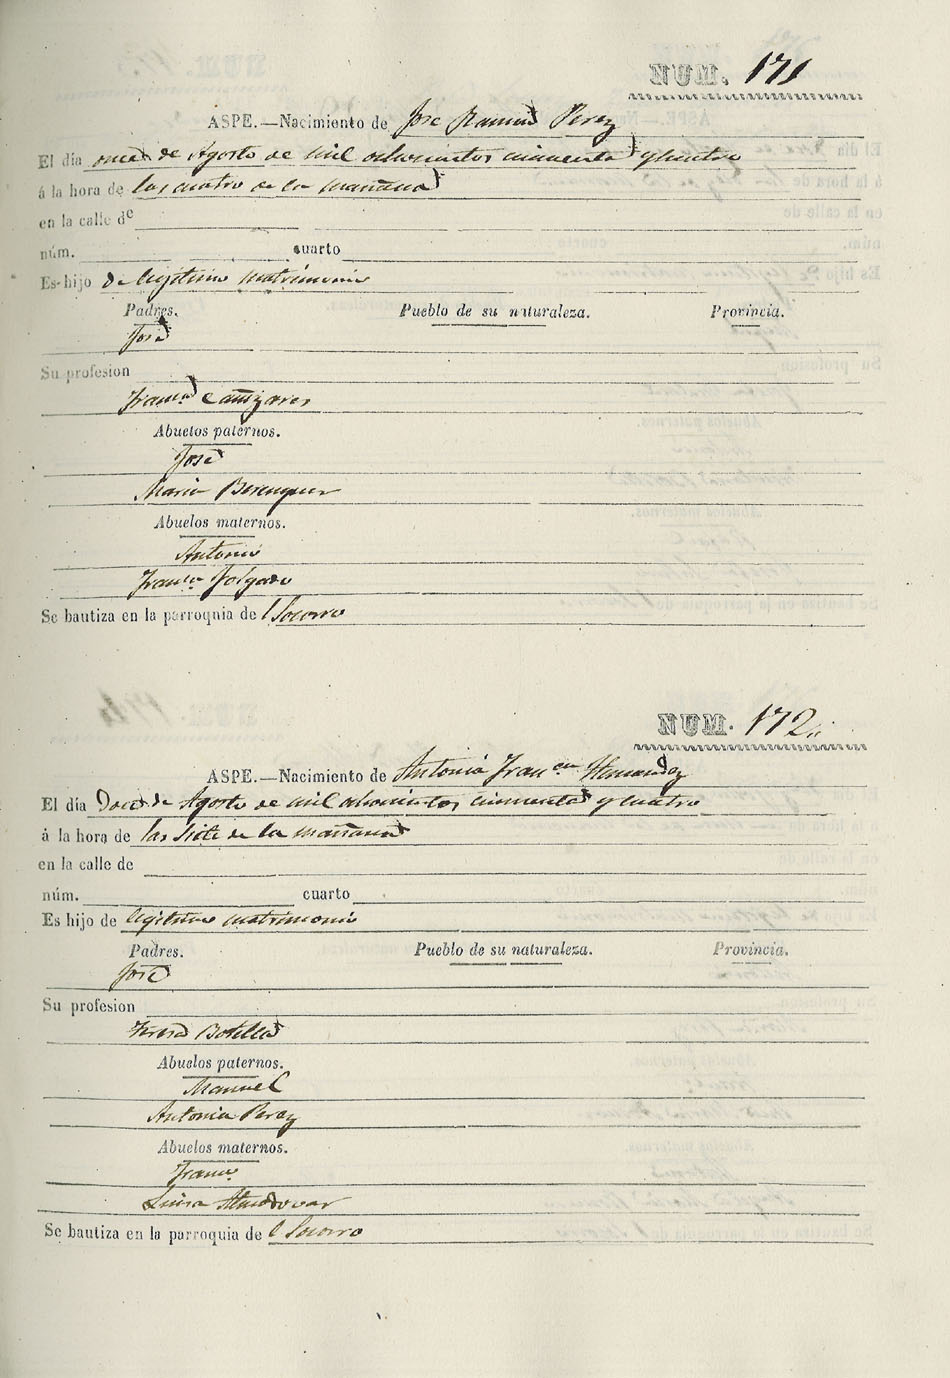 NUM. 171
ASPE.—Nacimiento de Jose Ramon Perez
El día once de Agosto de mil ochocientos cincuenta y cuatro
á la hora de las cuatro de la mañana
en la calle de
núm. cuarto
Es hijo de legitimo matrimonio
Padres. Pueblo de su naturaleza. Provincia.
José
Su profesion
Franca Cañizares
Abuelos paternos.
José
Maria Berenguer
Abuelos maternos.
Antonio
Franca Folgado
Se bautiza en la parroquia del Socorro
NUM. 172
ASPE.—Nacimiento de Antonia Franca Hernandez
El día Doce de Agosto de mil ochocientos cincuenta y cuatro
á la hora de las siete de la mañana
en la calle de
núm. cuarto
Es hijo de legitimo matrimonio
Padres. Pueblo de su naturaleza. Provincia.
José
Su profesion
Teresa Botella
Abuelos paternos.
Manuel
Antonia Perez
Abuelos maternos.
Franco
Luisa Almodovar
Se bautiza en la parroquia del Socorro